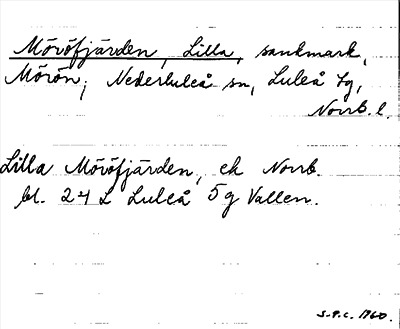 Mövöfjärden, Lilla, sankmark,
Mörön, Nederluleå sn, Luleå tg,
Norrb. l.
Lilla Mövöfjärden, ek Norrb.
bl. 24 L Luleå 5g Vallen.
S.P.C. 1960.